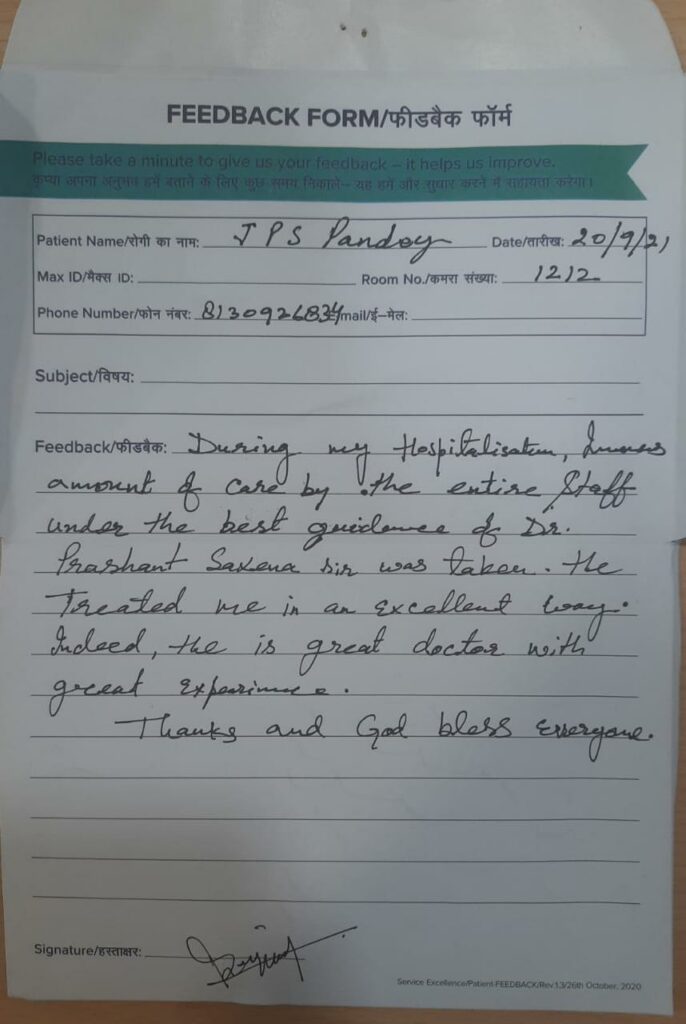 FEEDBACK FORM/फीडबैक फॉर्म
Please take a minute to give us your feedback – it helps us improve.
कृप्या अपना अनुभव हमें बताने के लिए कुछ समय निकाले– यह हमें और सुधार करने में सहायता करेगा।
Patient Name/रोगी का नाम: J P S Pandey Date/तारीख: 20/9/21
Max ID/मैक्स ID: Room No./कमरा संख्या: 1212
Phone Number/फोन नंबर: 8130926834 Email/ई–मेल:
Subject/विषय:
Feedback/फीडबैक: During my Hospitalisation, Immens
amount of care by the entire Staff
under the best guidence of Dr.
Prashant Saxena sir was taken. He
Treated me in an excellent way.
Indeed, He is great doctor with
great experience.
Thanks and God bless everyone.
Signature/हस्ताक्षर:
Service Excellence/Patient-FEEDBACK/Rev1.3/26th October, 2020